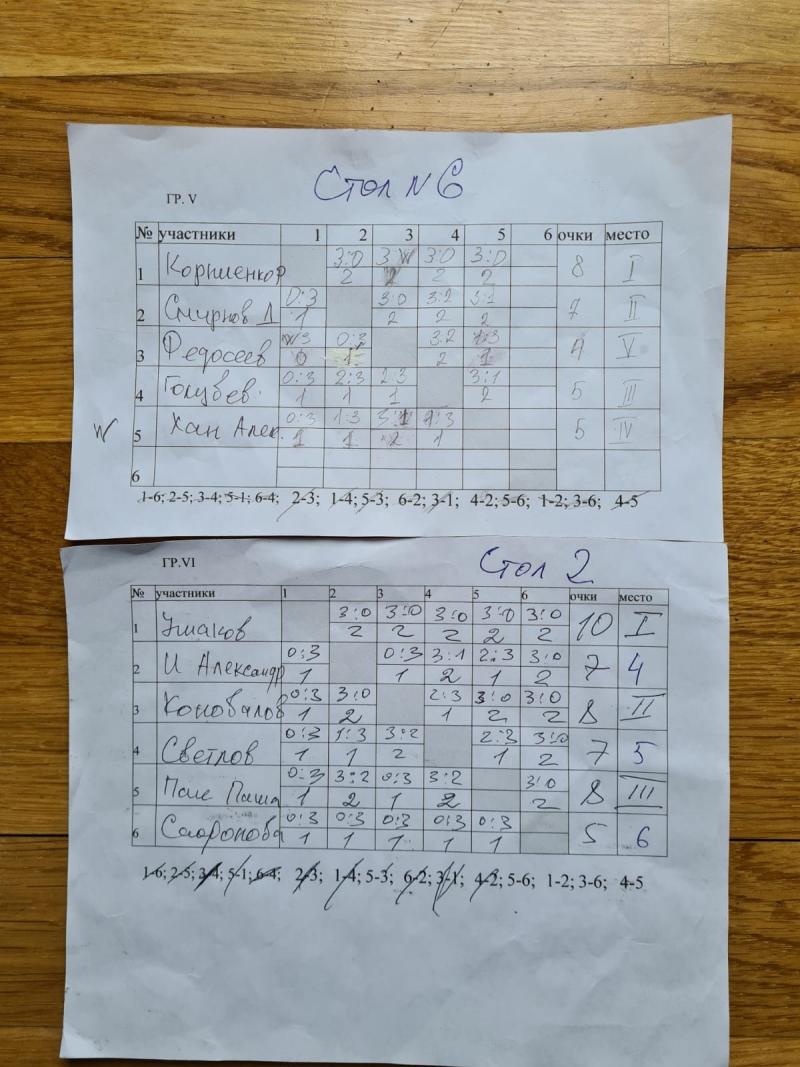 Стол N 6
ГР. V
№ участники 1 2 3 4 5 6 очки место
3:0 3:W 3:0 3:0
1 Корниенко 2 2 2 2 8 I
0:3 3:0 3:2 3:1
2 Смирнов Д 1 2 2 2 7 II
W:3 0:3 3:2 1:3
3 Федосеев 0 1 2 1 4 V
0:3 2:3 2:3 3:1
4 Голубев. 1 1 1 2 5 III
0:3 1:3 3:1 1:3
W 5 Хан Алек. 1 1 2 1 5 IV
6
1-6; 2-5; 3-4; 5-1; 6-4; 2-3; 1-4; 5-3; 6-2; 3-1; 4-2; 5-6; 1-2; 3-6; 4-5
ГР.VI
Стол 2
№ участники 1 2 3 4 5 6 очки место
3:0 3:0 3:0 3:0 3:0
1 Ушаков 2 2 2 2 2 10 I
0:3 0:3 3:1 2:3 3:0
2 И Александр 1 1 2 1 2 7 4
0:3 3:0 2:3 3:0 3:0
3 Коновалов 1 2 1 2 2 8 II
0:3 1:3 3:2 2:3 3:0
4 Светлов 1 1 2 1 2 7 5
0:3 3:2 0:3 3:2 3:0
5 Паша 1 2 1 2 2 8 III
0:3 0:3 0:3 0:3 0:3
6 1 1 1 1 1 5 6
1-6; 2-5; 3-4; 5-1; 6-4; 2-3; 1-4; 5-3; 6-2; 3-1; 4-2; 5-6; 1-2; 3-6; 4-5